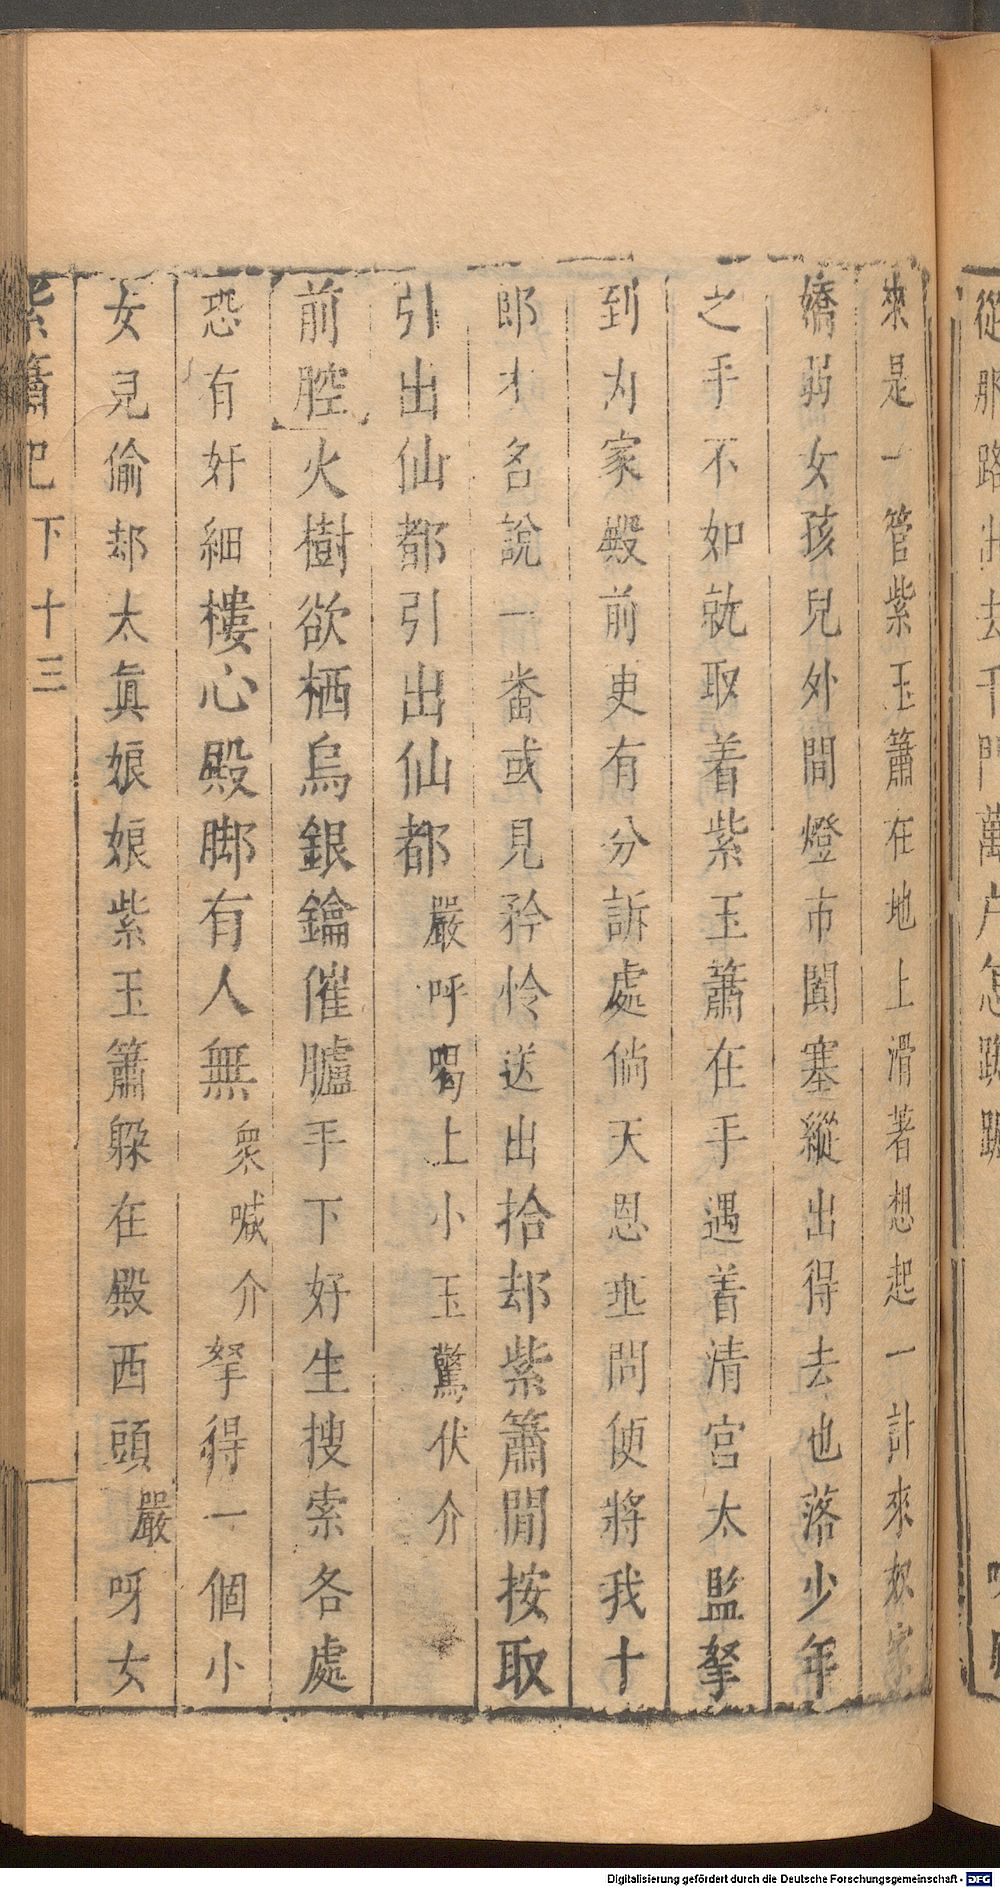 從那路出去千門萬户怎跳
來是一管紫玉簫在地上滑著想起一計來奴家
嬌弱女孩兒外間燈市闐塞縱出得去也落少年
之手不如就取着紫玉簫在手遇着清宮太監拏
到内家殿前更有分訴處倘天恩垂問便將我十
郎才名說一畨或見矜怜送出拾却紫簫閒按取
引出仙都引出仙都嚴呼喝上小玉驚伏介
前腔火樹欲栖烏銀鑰催臚手下好生搜索各處
恐有奸細樓心殿脚有人無衆喊介拏得一個小
女兒偷却太眞娘娘紫玉簫躲在殿西頭嚴呀女
紫簫記下十三
Digitalisierung gefördert durch die Deutsche Forschungsgemeinschaft - DFG